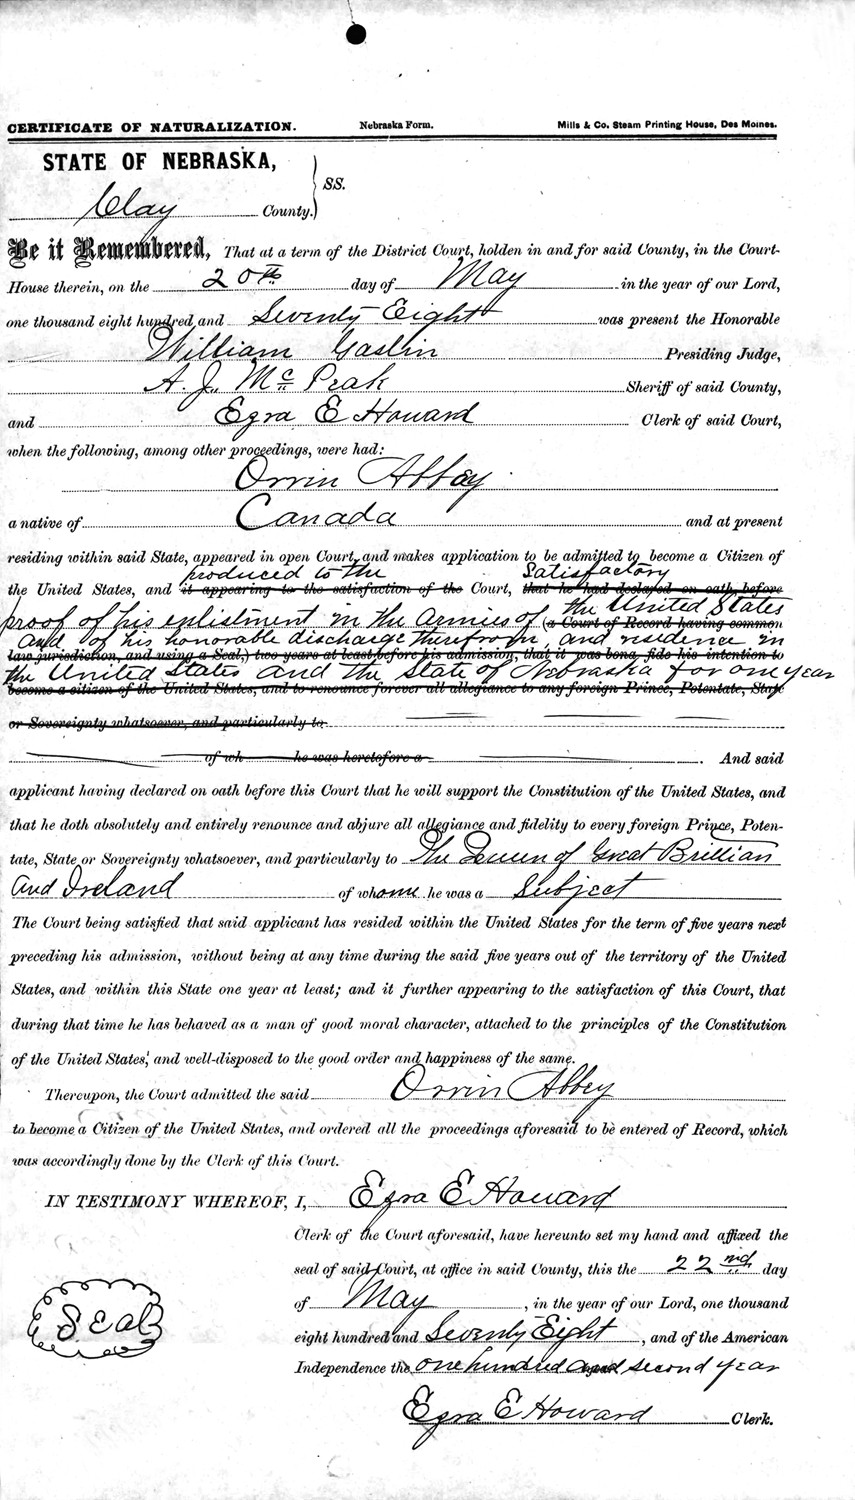 CERTIFICATE OF NATURALIZATION. Nebraska Form. Mills & Co. Steam Printing House, Des Moines.
STATE OF NEBRASKA,
SS.
Clay County.
Be it Remembered, That at a term of the District Court, holden in and for said County, in the Court-
House therein, on the 20th day of May in the year of our Lord,
one thousand eight hundred and Seventy Eight was present the Honorable
William Gaslin Presiding Judge,
A. J. McPeak Sheriff of said County,
and Ezra E Howard Clerk of said Court,
when the following, among other proceedings, were had:
Orrin Abbey
a native of Canada and at present
residing within said State, appeared in open Court, and makes application to be admitted to become a Citizen of
produced to the Satisfactory
the United States, and it appearing to the satisfaction of the Court, that he had declared on oath, before
proof of his enlistment in the Armies of the United States
(a Court of Record having common
and of his honorable discharge therefrom, and residence in
law jurisdiction, and using a Seal,) two years at least before his admission, that it was bona fide his intention to
the United States and the State of Nebraska for one year
become a citizen of the United States, and to renounce forever all allegiance to any foreign Prince, Potentate, State
or Sovereignty whatsoever, and particularly to
of wh he was heretofore a . And said
applicant having declared on oath before this Court that he will support the Constitution of the United States, and
that he doth absolutely and entirely renounce and abjure all allegiance and fidelity to every foreign Prince, Poten-
tate, State or Sovereignty whatsoever, and particularly to The Queen of Great Brittian
and Ireland of whome he was a Subject
The Court being satisfied that said applicant has resided within the United States for the term of five years next
preceding his admission, without being at any time during the said five years out of the territory of the United
States, and within this State one year at least; and it further appearing to the satisfaction of this Court, that
during that time he has behaved as a man of good moral character, attached to the principles of the Constitution
of the United States, and well-disposed to the good order and happiness of the same.
Thereupon, the Court admitted the said Orrin Abbey
to become a Citizen of the United States, and ordered all the proceedings aforesaid to be entered of Record, which
was accordingly done by the Clerk of this Court.
IN TESTIMONY WHEREOF, I, Ezra E Howard
Clerk of the Court aforesaid, have hereunto set my hand and affixed the
seal of said Court, at office in said County, this the 22nd day
of May , in the year of our Lord, one thousand
Seal
eight hundred and Seventy Eight , and of the American
Independence the one hundred and second year
Ezra E Howard Clerk.